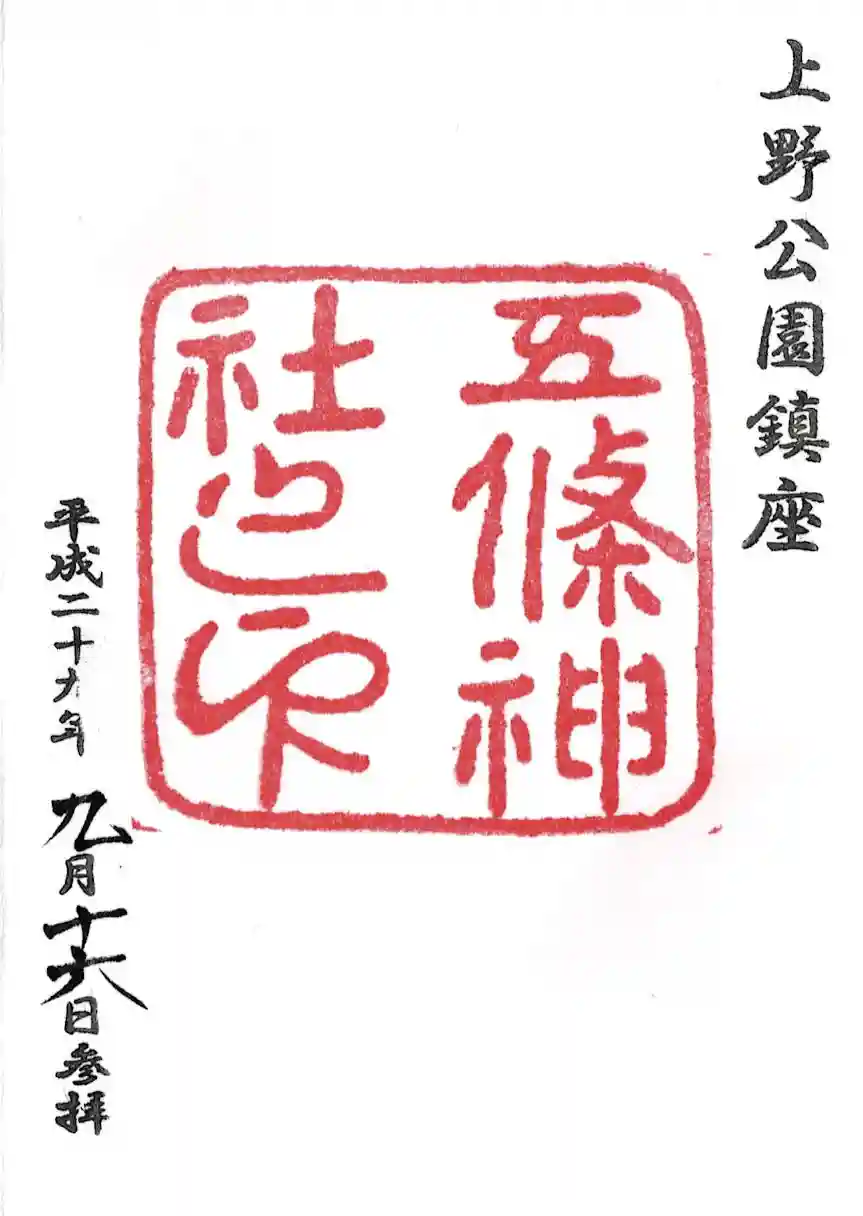 上野公園鎮座
五條神
社之印
平成二十九年九月十六日参拝